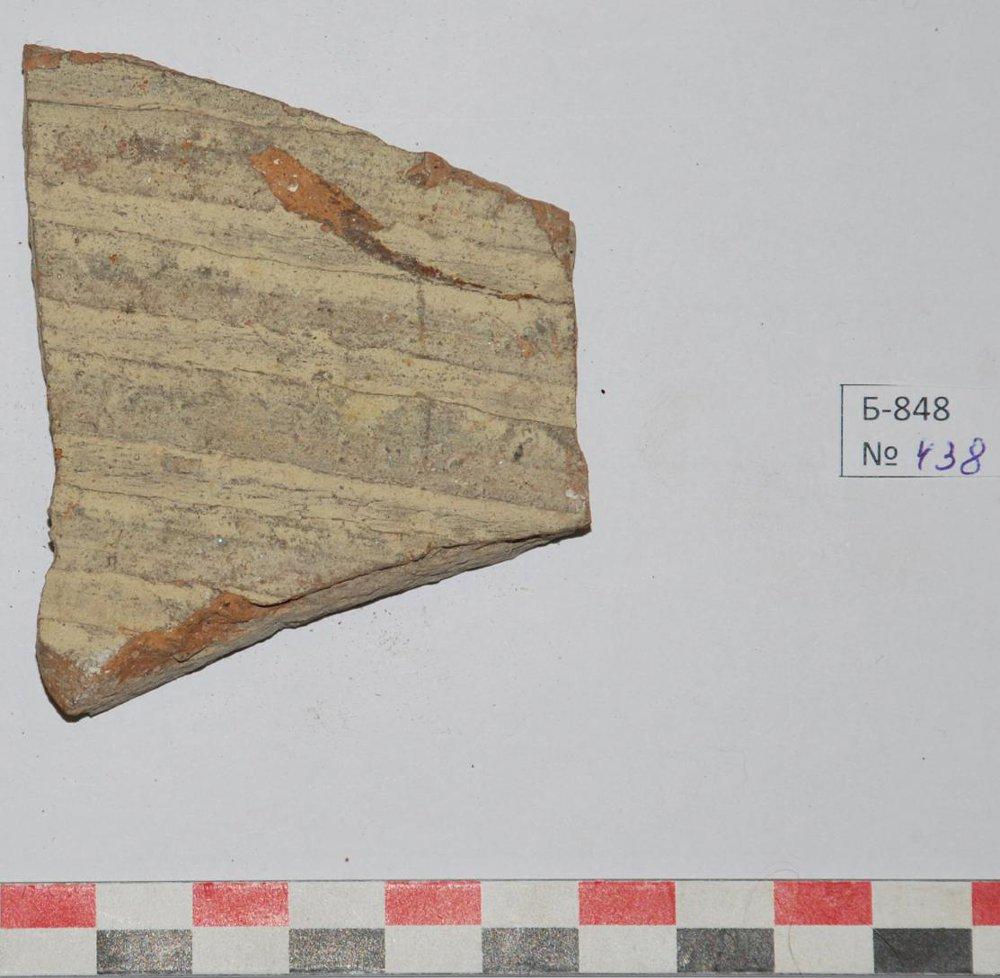 Б-848
№ 438